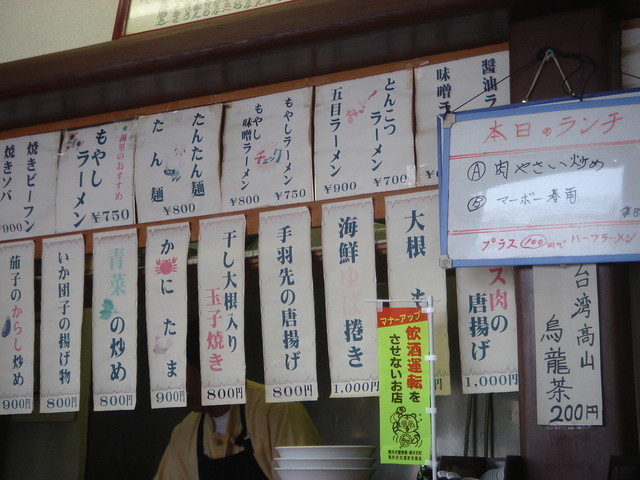 醤油ラ
味噌ラ
とんこつ
ラーメン
￥700
五目ラーメン
￥900
もやしラーメン
もやし
味噌ラーメン
チェック
￥750
たんたん麺
たん麺
￥800
萬里のおすすめ
もやし
ラーメン
￥750
焼きビーフン
焼きソバ
900
本日のランチ
A 肉やさい炒め
B マーボー春雨
プラス100でハーフラーメン
ス肉の
唐揚げ
1,000円
大根も
海鮮ゆば捲き
1,000円
手羽先の唐揚げ
800円
干し大根入り
玉子焼き
800円
かにたま
900円
青菜の炒め
800円
いか団子の揚げ物
800円
茄子のからし炒め
900円
マナーアップ
飲酒運転を
させないお店
台湾高山
烏龍茶
200円